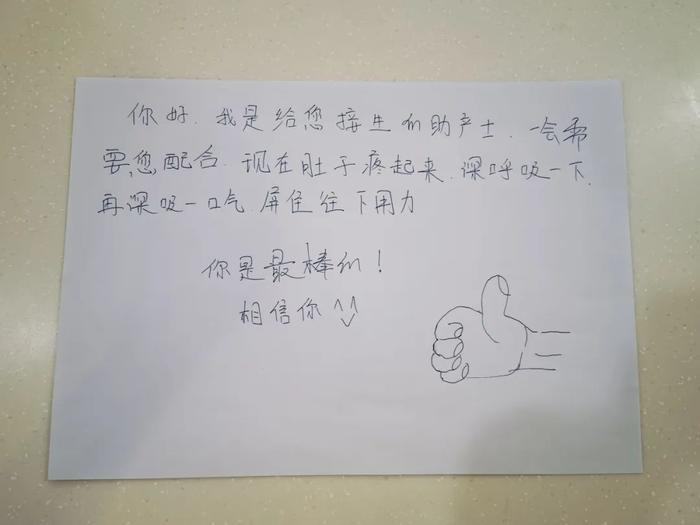 你好.我是给您接生的助产士.一会需
要您配合.现在肚子疼起来.深呼吸一下.
再深吸一口气 屏住往下用力
你是最棒的!
相信你^^